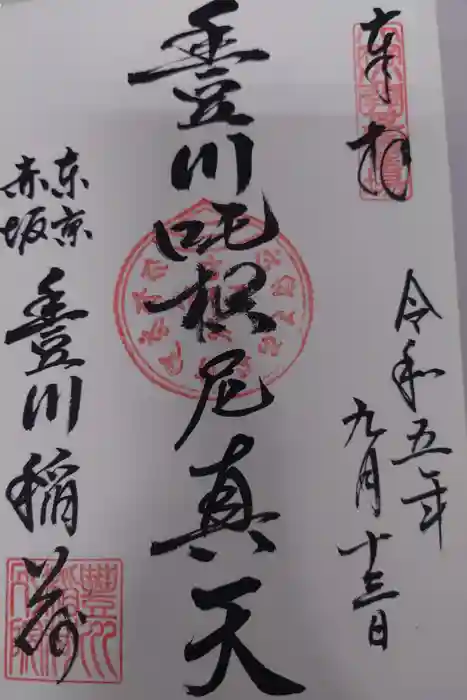 奉拝
令和五年
九月十三日
豊川吒枳尼真天
東京
赤坂
豊川稲荷